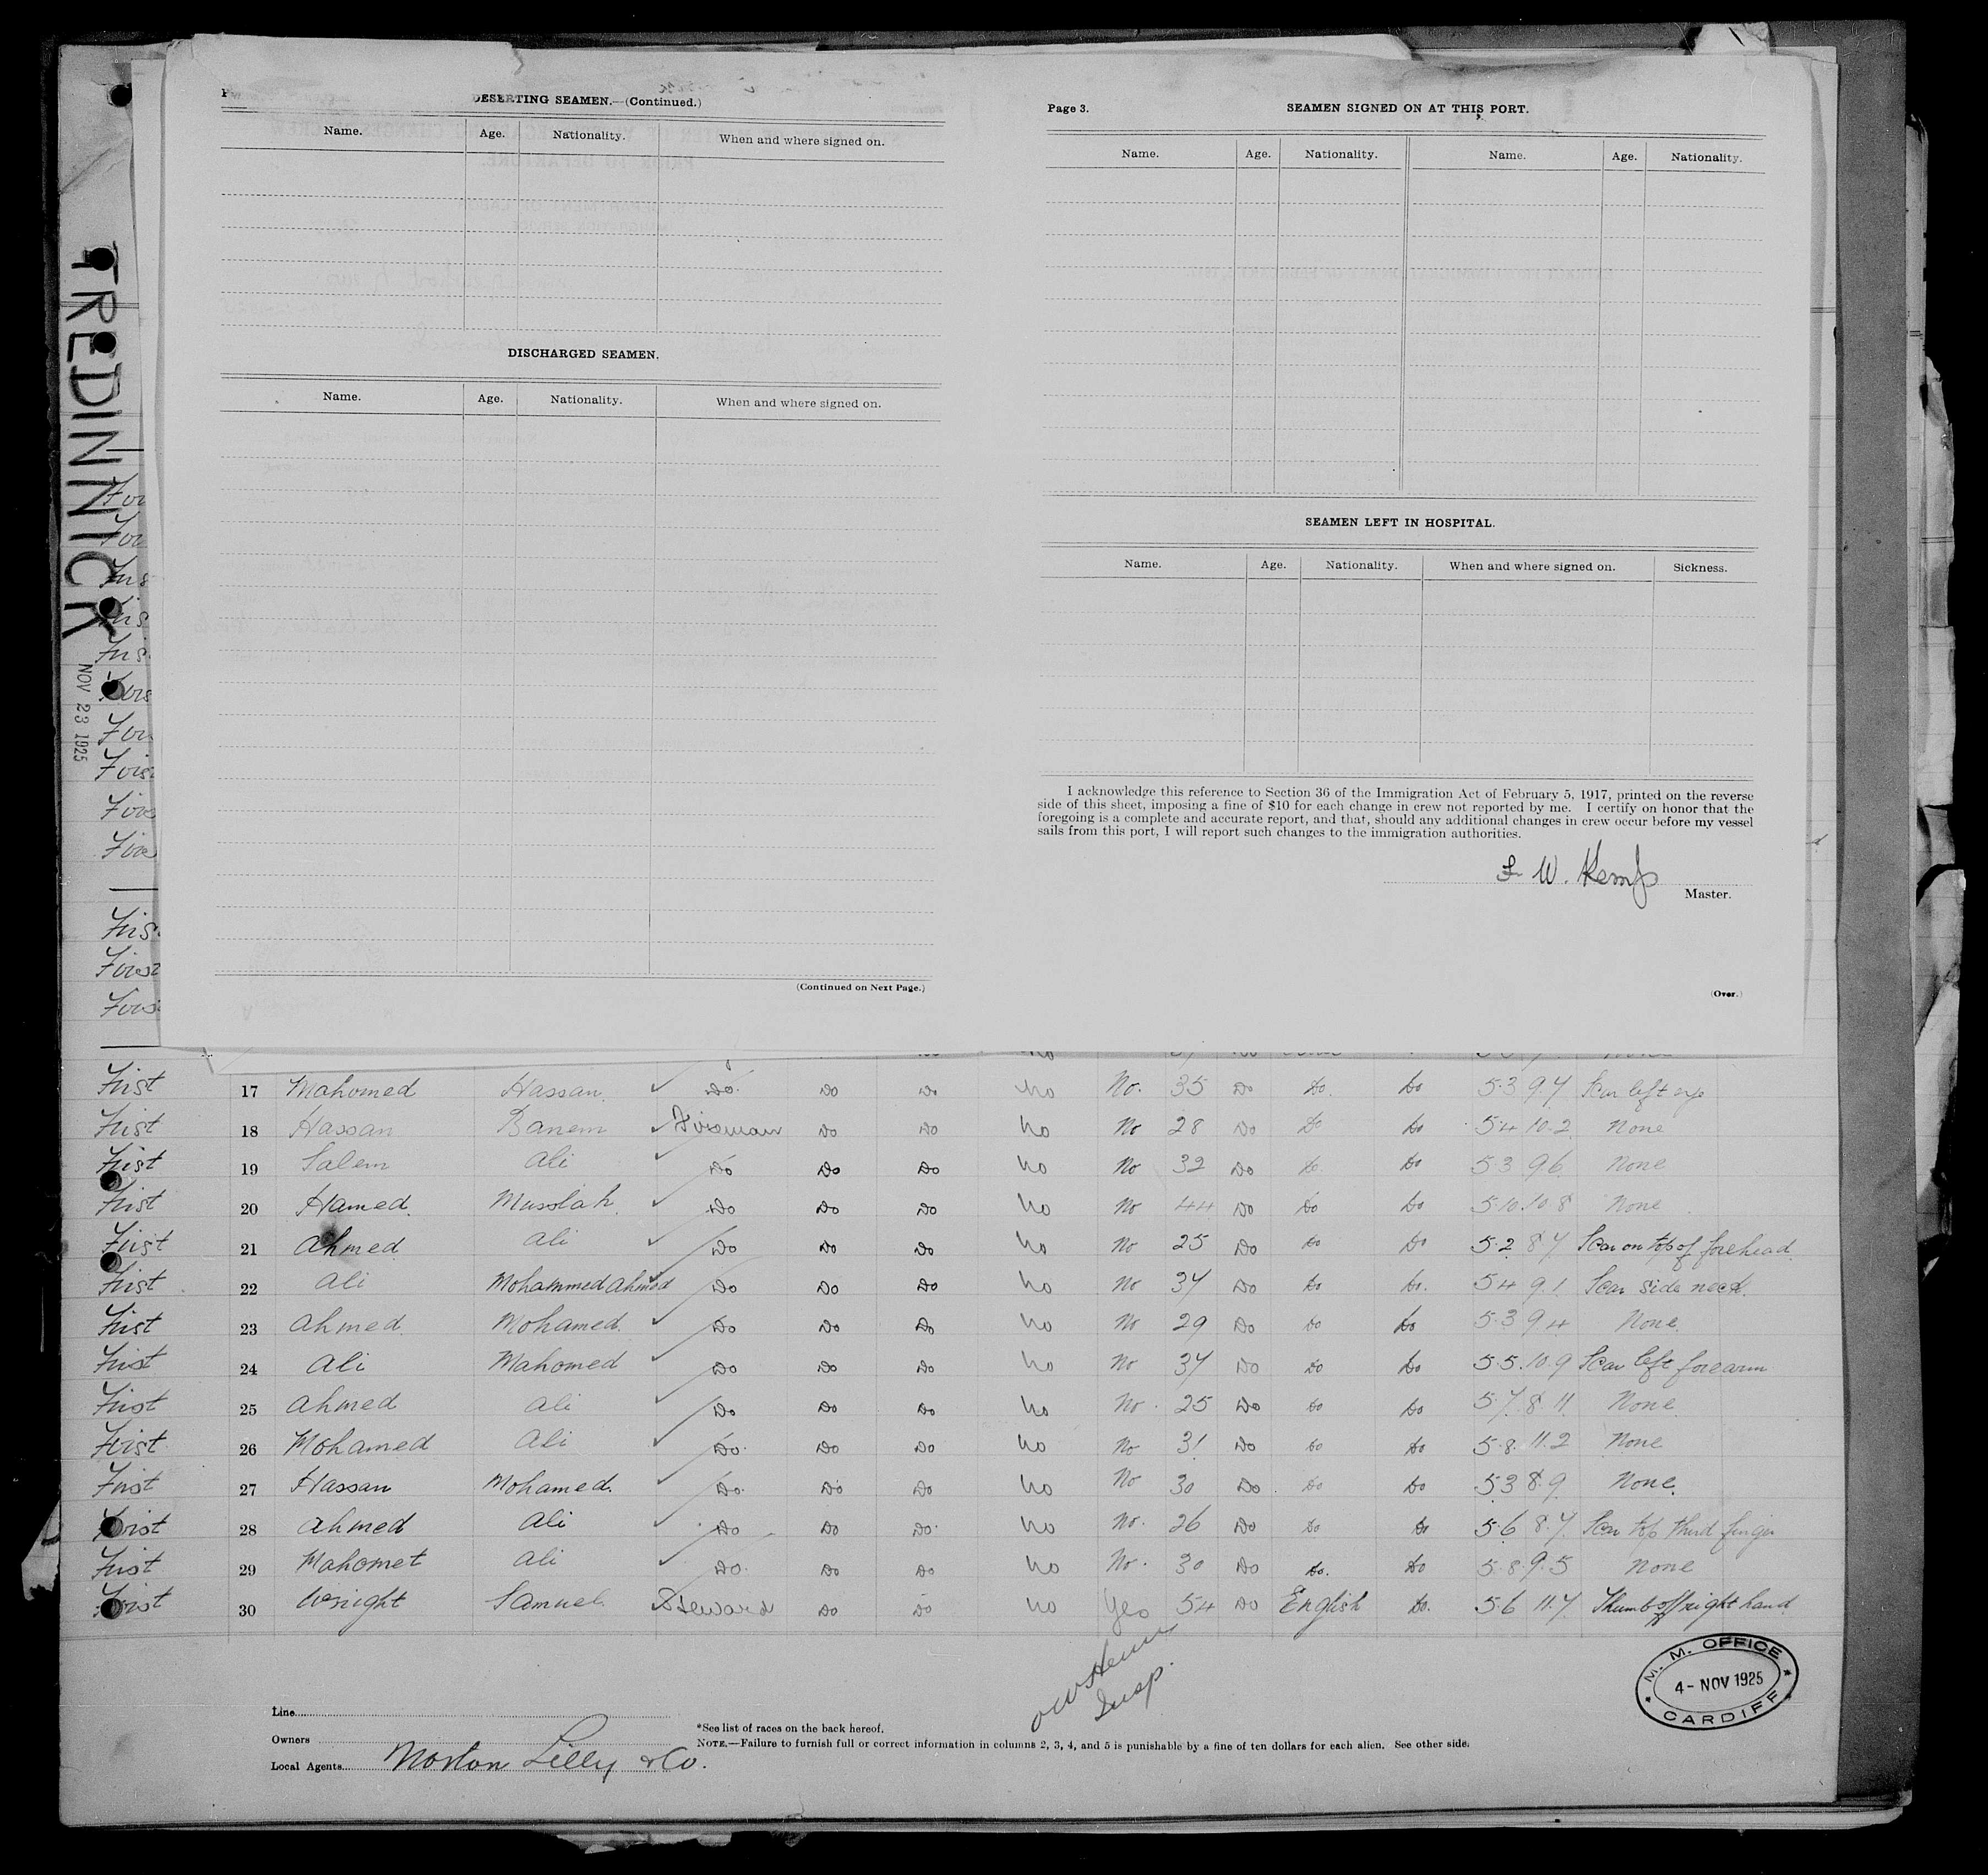 TREDINNICK
NOV 23 1925
DESERTING SEAMEN.—(Continued.)
Name. Age. Nationality. When and where signed on.
DISCHARGED SEAMEN.
Name. Age. Nationality. When and where signed on.
(Continued on Next Page.)
Page 3. SEAMEN SIGNED ON AT THIS PORT.
Name. Age. Nationality. Name. Age. Nationality.
SEAMEN LEFT IN HOSPITAL.
Name. Age. Nationality. When and where signed on. Sickness.
I acknowledge this reference to Section 36 of the Immigration Act of February 5, 1917, printed on the reverse
side of this sheet, imposing a fine of $10 for each change in crew not reported by me. I certify on honor that the
foregoing is a complete and accurate report, and that, should any additional changes in crew occur before my vessel
sails from this port, I will report such changes to the immigration authorities.
F W. Kemp
Master.
(Over.)
First 17 Mahomed Hassan Do. Do Do no No. 35 Do Do. Do 5.3 9.7 Scar left eye
First 18 Hassan Banem Fireman Do Do no No 28 Do Do Do 5.4 10.2 None
First 19 Salem Ali Do Do Do no No 32 Do Do. Do 5.3 9.6 None
First 20 Hamed. Musolah. Do Do Do no No 44 Do Do Do 5.10. 10.8 None
First 21 Ahmed Ali Do Do Do no No 25 Do Do Do 5.2 8.7 Scar on top of forehead.
First 22 Ali Mohammed Ahmed Do Do Do no No 37 Do Do Do. 5.4 9.1 Scar side neck.
First 23 Ahmed. Mohamed. Do Do Do no No 29 Do Do Do 5.3 9.4 None.
First 24 Ali Mahomed Do Do Do no No 37 Do Do Do 5.5. 10.9 Scar left forearm
First 25 Ahmed Ali Do Do Do no No. 25 Do Do Do 5.7. 8.11. None.
First 26 Mohamed Ali Do. Do Do no No 31 Do Do Do 5.8. 11.2 None
First 27 Hassan Mohamed. Do. Do Do no No 30 Do Do Do 5.3 8.9 None.
First 28 Ahmed Ali Do Do Do. no No. 26 Do Do Do 5.6 8.7. Scar top third finger
First 29 Mahomet Ali Do. Do Do no No. 30 Do Do. Do 5.8. 9.5 None
First 30 Wright Samuel Steward Do Do no Yes 54 Do English Do. 5.6 11.7 Thumb off right hand.
Insp.
M. M. OFFICE
4- NOV 1925
CARDIFF
Line
Owners
Local Agents Norton Lilly & Co.
*See list of races on the back hereof.
NOTE.—Failure to furnish full or correct information in columns 2, 3, 4, and 5 is punishable by a fine of ten dollars for each alien. See other side.